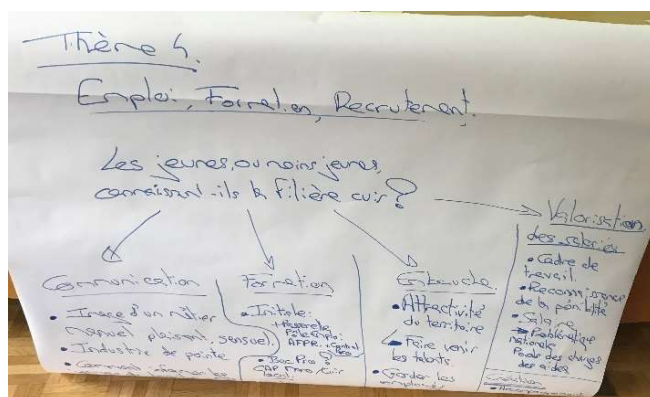 Thème 4.
Emploi, Formation, Recrutement.
Les jeunes, ou moins jeunes,
connaissent-ils la filière cuir ?
Communication
• Image d'un métier
manuel plaisant, sensuel.
• Industrie de pointe
• Comment
Formation
• Initiale :
+ Passerelle
Pôle emploi
AFPR
• Bac Pro ?
CAP Maro / Cuir
local
Embauche
• Attractivité
du territoire
↳ Faire venir
les talents.
• Garder les
Valorisation
des salariés
• Cadre de
travail
• Reconnaissance
de la pénibilité
• Salaire
→ Problématique
nationale
Poids des charges
des aides